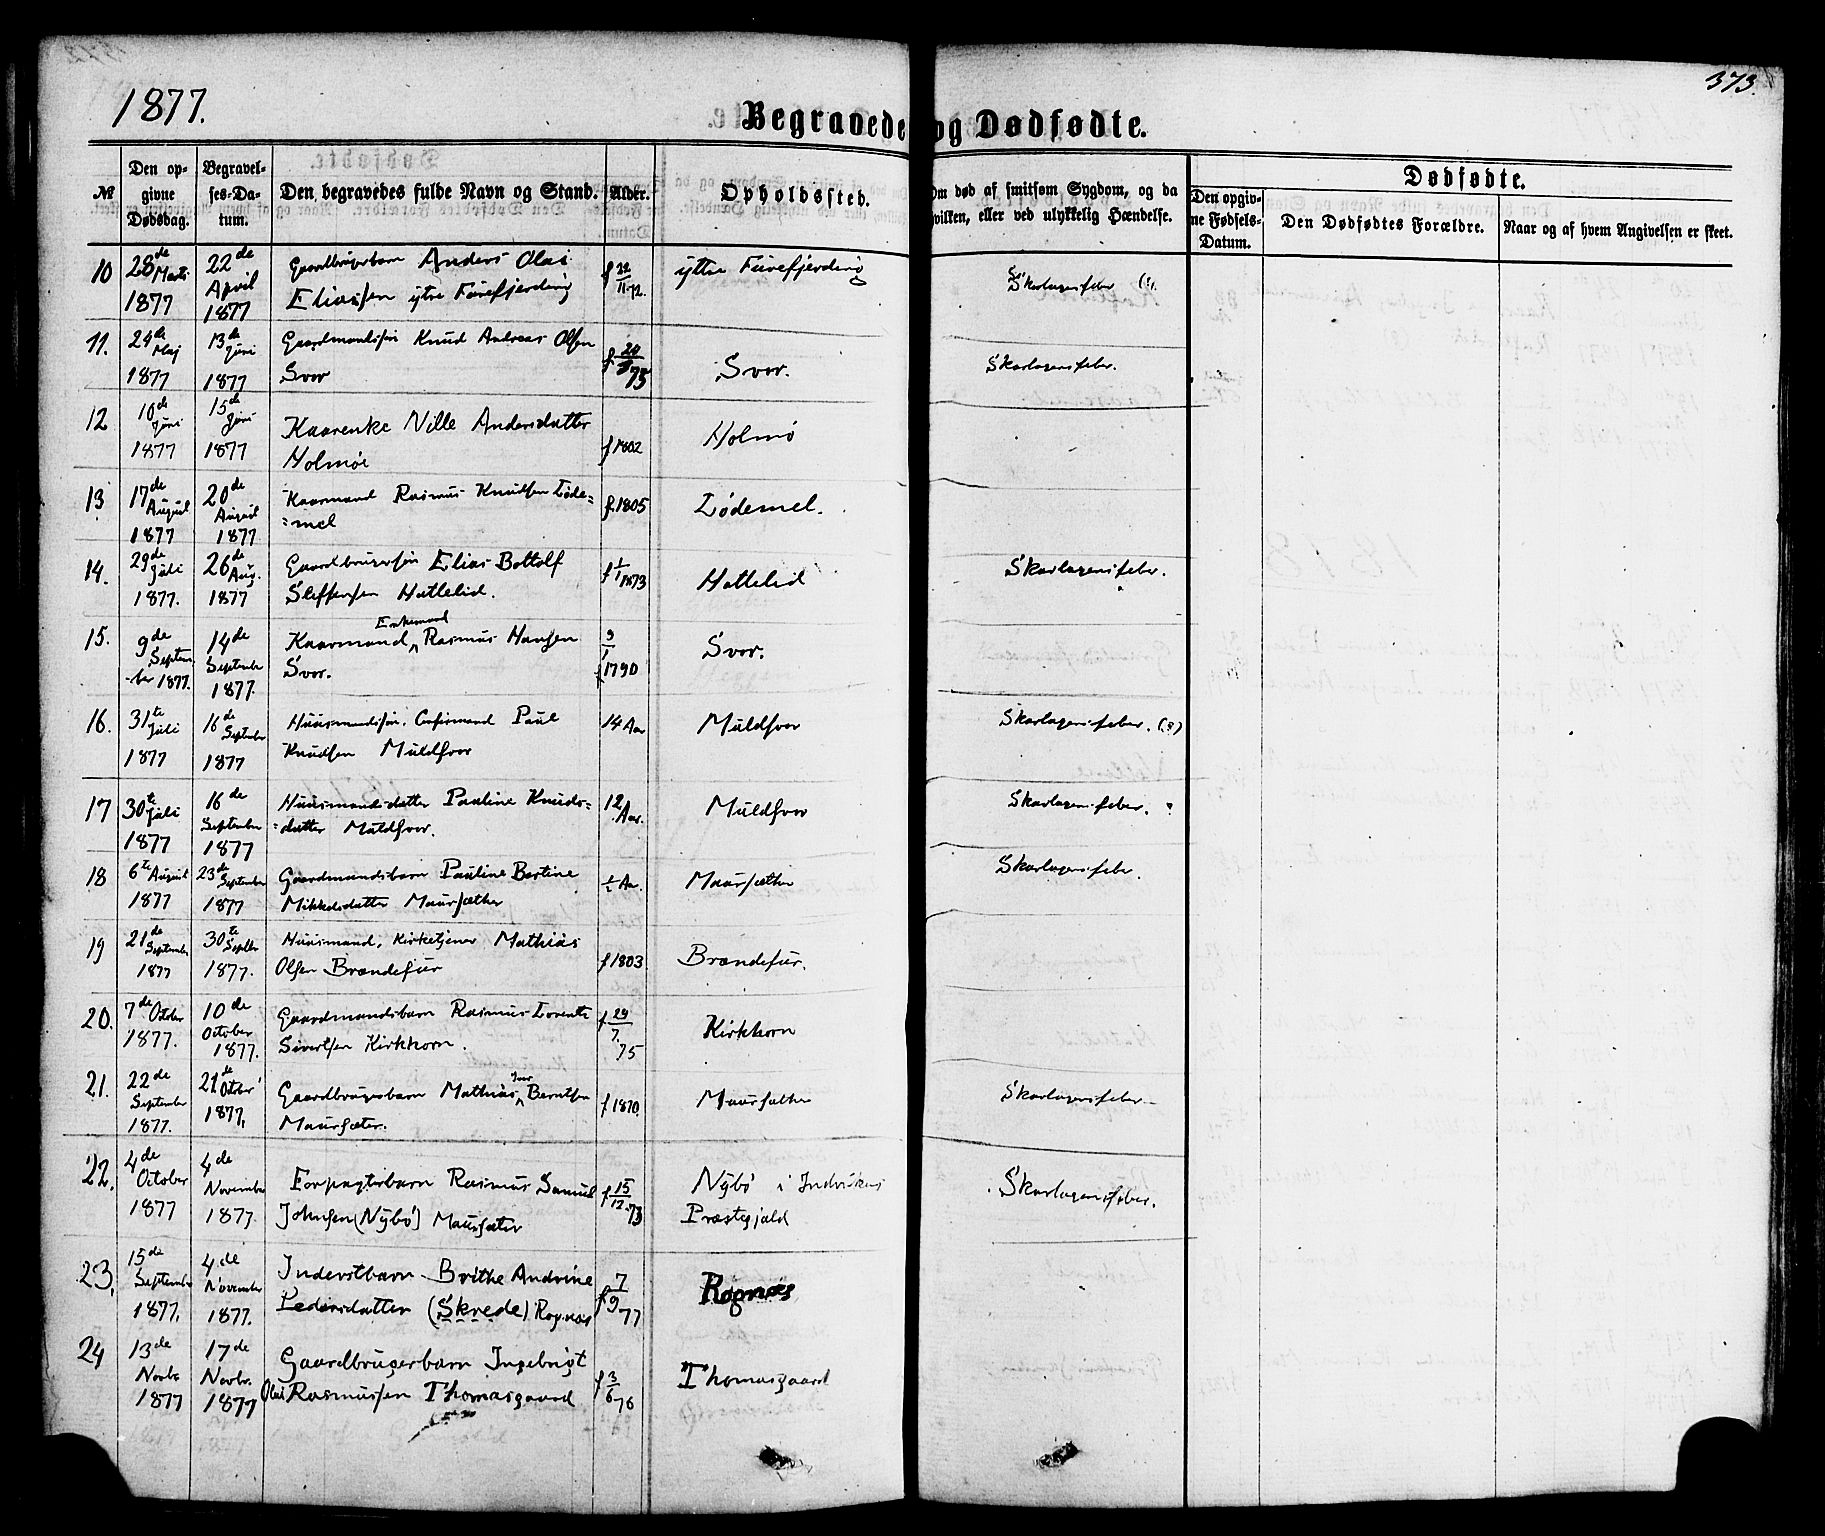 373.
1877.
Begravede og Dødfødte.
№
Den opgivne Dødsdag.
Begravelses-Datum.
Den begravedes fulde Navn og Stand.
Alder.
Opholdssted.
Om død af smitsom Sygdom, og da hvilken, eller ved ulykkelig Hændelse.
Dødfødte.
Den opgivne Fødsels-Datum.
Den Dødfødtes Forældre.
Naar og af hvem Angivelsen er skeet.
10 28de Marts 1877 22de April 1877 Gaardbrugerbarn Anders Olai f 22/11.72. ytre Furefjerding Skarlagensfeber (?)
Eliassen ytre Furefjerding
11. 24de Maj 1877 13de Juni 1877 Gaardmandssøn Knud Andreas Olsen Svor. Skarlagensfeber.
Svor
12 10de Juni 1877 15de Juni 1877 Kaarenke Nille Andersdatter f 1802 Holmø
Holmøe
13 17de August 1877 20de August 1877 Kaarmand Rasmus Knudsen Løde= f. 1805 Lødemel.
=mel
14. 29de Juli 1877. 26de Aug. 1877 Gaardbrugersøn Elias Bottolf f 1/1 1873 Hattelid Skarlagensfeber.
Steffensen Hattelid.
15. 9de September 1877. 14de September 1877. Kaarmand, Enkemand Rasmus Hansen 9/1 f 1790 Svor.
Svor.
16. 31te Juli 1877 16de September 1877 Huusmandssøn, Confirmand Paul 14 Aar Muldsvor Skarlagensfeber. (?)
Knudsen Muldsvor
17 30te Juli 1877 16de September 1877 Huusmandsdatter Pauline Knuds= 12 Aar. Muldsvor Skarlagensfeber. ?
=datter Muldsvor.
18 6te August 1877 23de September 1877 Gaardmandsbarn Pauline Bertine ½ Aar. Maursæther Skarlagensfeber.
Mikkelsdatter Maursæther
19 21de September 1877 30te Septbr 1877. Huusmand, Kirketjener Mathias f 1803 Brændefur.
Olsen Brændefur
20. 7de October 1877. 10de October 1877. Gaardmandsbarn Rasmus Lorents f 29/7. 75 Kirkhorn
Sivertsen Kirkhorn.
21. 22de September 1877. 21de October 1877. Gaardbrugerbarn Mathias Iver Berntsen f 1870. Maursæther Skarlagensfeber
Maursæter.
22. 4de October 1877 4de November 1877. Forpagterbarn Rasmus Samuel f 15/12.73 Nybø i Indvikens Skarlagensfeber.
Johnsen (Nybø) Maursæter Præstegjald
23. 15de September 1877. 4de November 1877. Inderstbarn Brithe Andrine f 7/9 77 Rognæs
Pedersdatter (Skrede) Rognæs
24 13de Novbr 1877 17de Novbr. 1877 Gaardbrugerbarn Ingebrigt f 3/6 76 Thomasgaard
Olai Rasmussen Thomasgaard